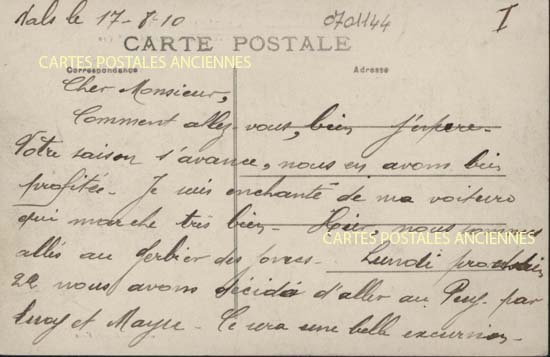 Vals le 17-8-10
0701144
I
CARTE POSTALE
CARTES POSTALES ANCIENNES
Correspondance
Adresse
Cher Monsieur,
Comment allez-vous, bien j'espère-
Votre saison s'avance, nous en avons bien
profitée- Je suis enchanté de ma voiture
qui marche très bien- Hier, nous sommes
CARTES POSTALES ANCIENNES
allés au Gerbier des Joncs- Lundi prochain
22 nous avons décidé d'aller au Puy- par
et Mayre- Ce sera une belle excursion-